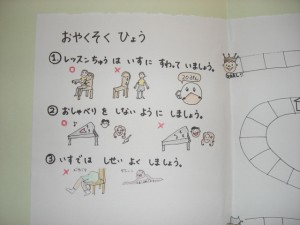 おやくそく ひょう
① レッスンちゅう は いす に すわって いましょう。
② おしゃべり を しない ように しましょう。
③ いす では しせい よく しましょう。